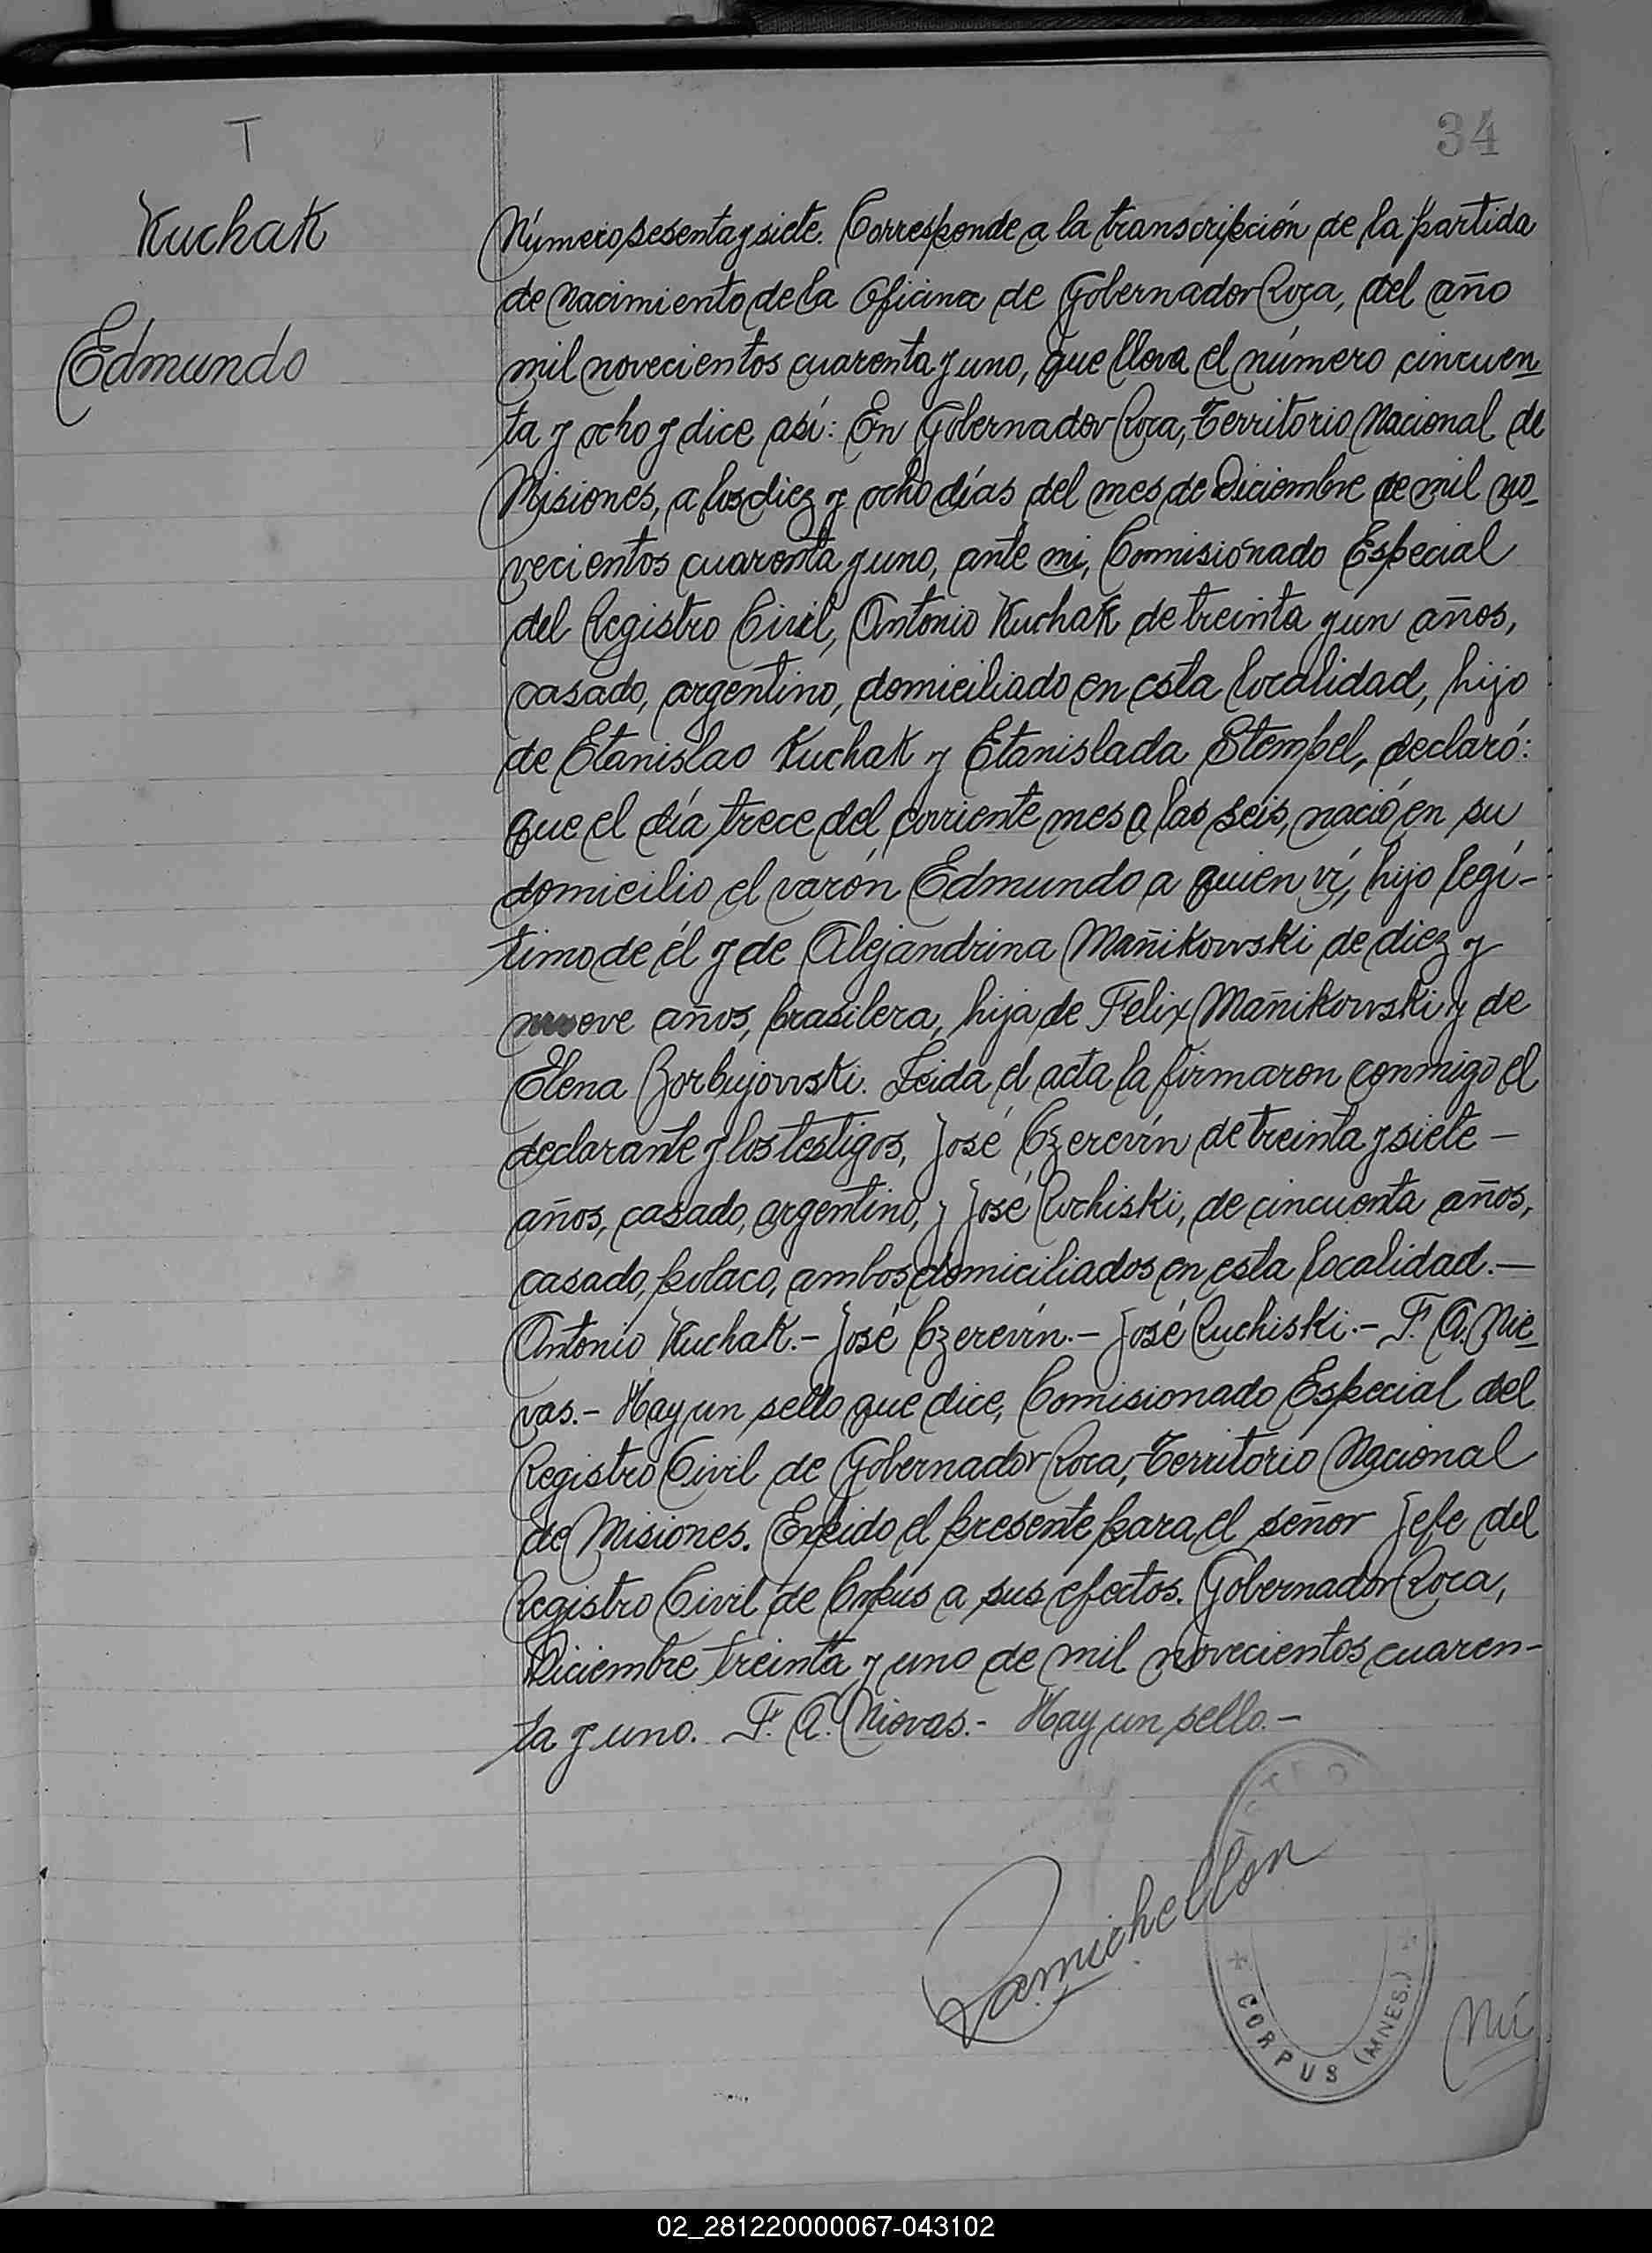 T
34
Kuchak
Edmundo
Número sesenta y siete. Corresponde a la transcripción de la partida
de nacimiento de la Oficina de Gobernador Roca, del año
mil novecientos cuarenta y uno, que lleva el número cincuen-
ta y ocho y dice así: En Gobernador Roca, Territorio Nacional de
Misiones, a los diez y ocho días del mes de Diciembre de mil no-
vecientos cuarenta y uno, ante mi, Comisionado Especial
del Registro Civil, Antonio Kuchak de treinta y un años,
casado, argentino, domiciliado en esta localidad, hijo
de Etanislao Kuchak y Etanislada Stempel, declaró:
que el día trece del corriente mes a las seis, nació en su
domicilio el varón Edmundo a quien ví, hijo legí-
timo de él y de Alejandrina Mañikowski de diez y
nueve años, brasilera, hija de Felix Mañikowski y de
Elena Borbujowski. Leida el acta la firmaron conmigo el
declarante y los testigos, José Czerevín de treinta y siete —
años, casado, argentino, y José Ruchiski, de cincuenta años,
casado, polaco, ambos domiciliados en esta localidad.—
Antonio Kuchak.- José Czerevín.- José Ruchiski.- F. A. Nie-
vas.- Hay un sello que dice, Comisionado Especial del
Registro Civil de Gobernador Roca, Territorio Nacional
de Misiones. Expido el presente para el señor Jefe del
Registro Civil de Corpus a sus efectos. Gobernador Roca,
Diciembre treinta y uno de mil novecientos cuaren-
ta y uno. F. A. Nievas.- Hay un sello.-
CORPUS (MNES.)
Nú
02_281220000067-043102